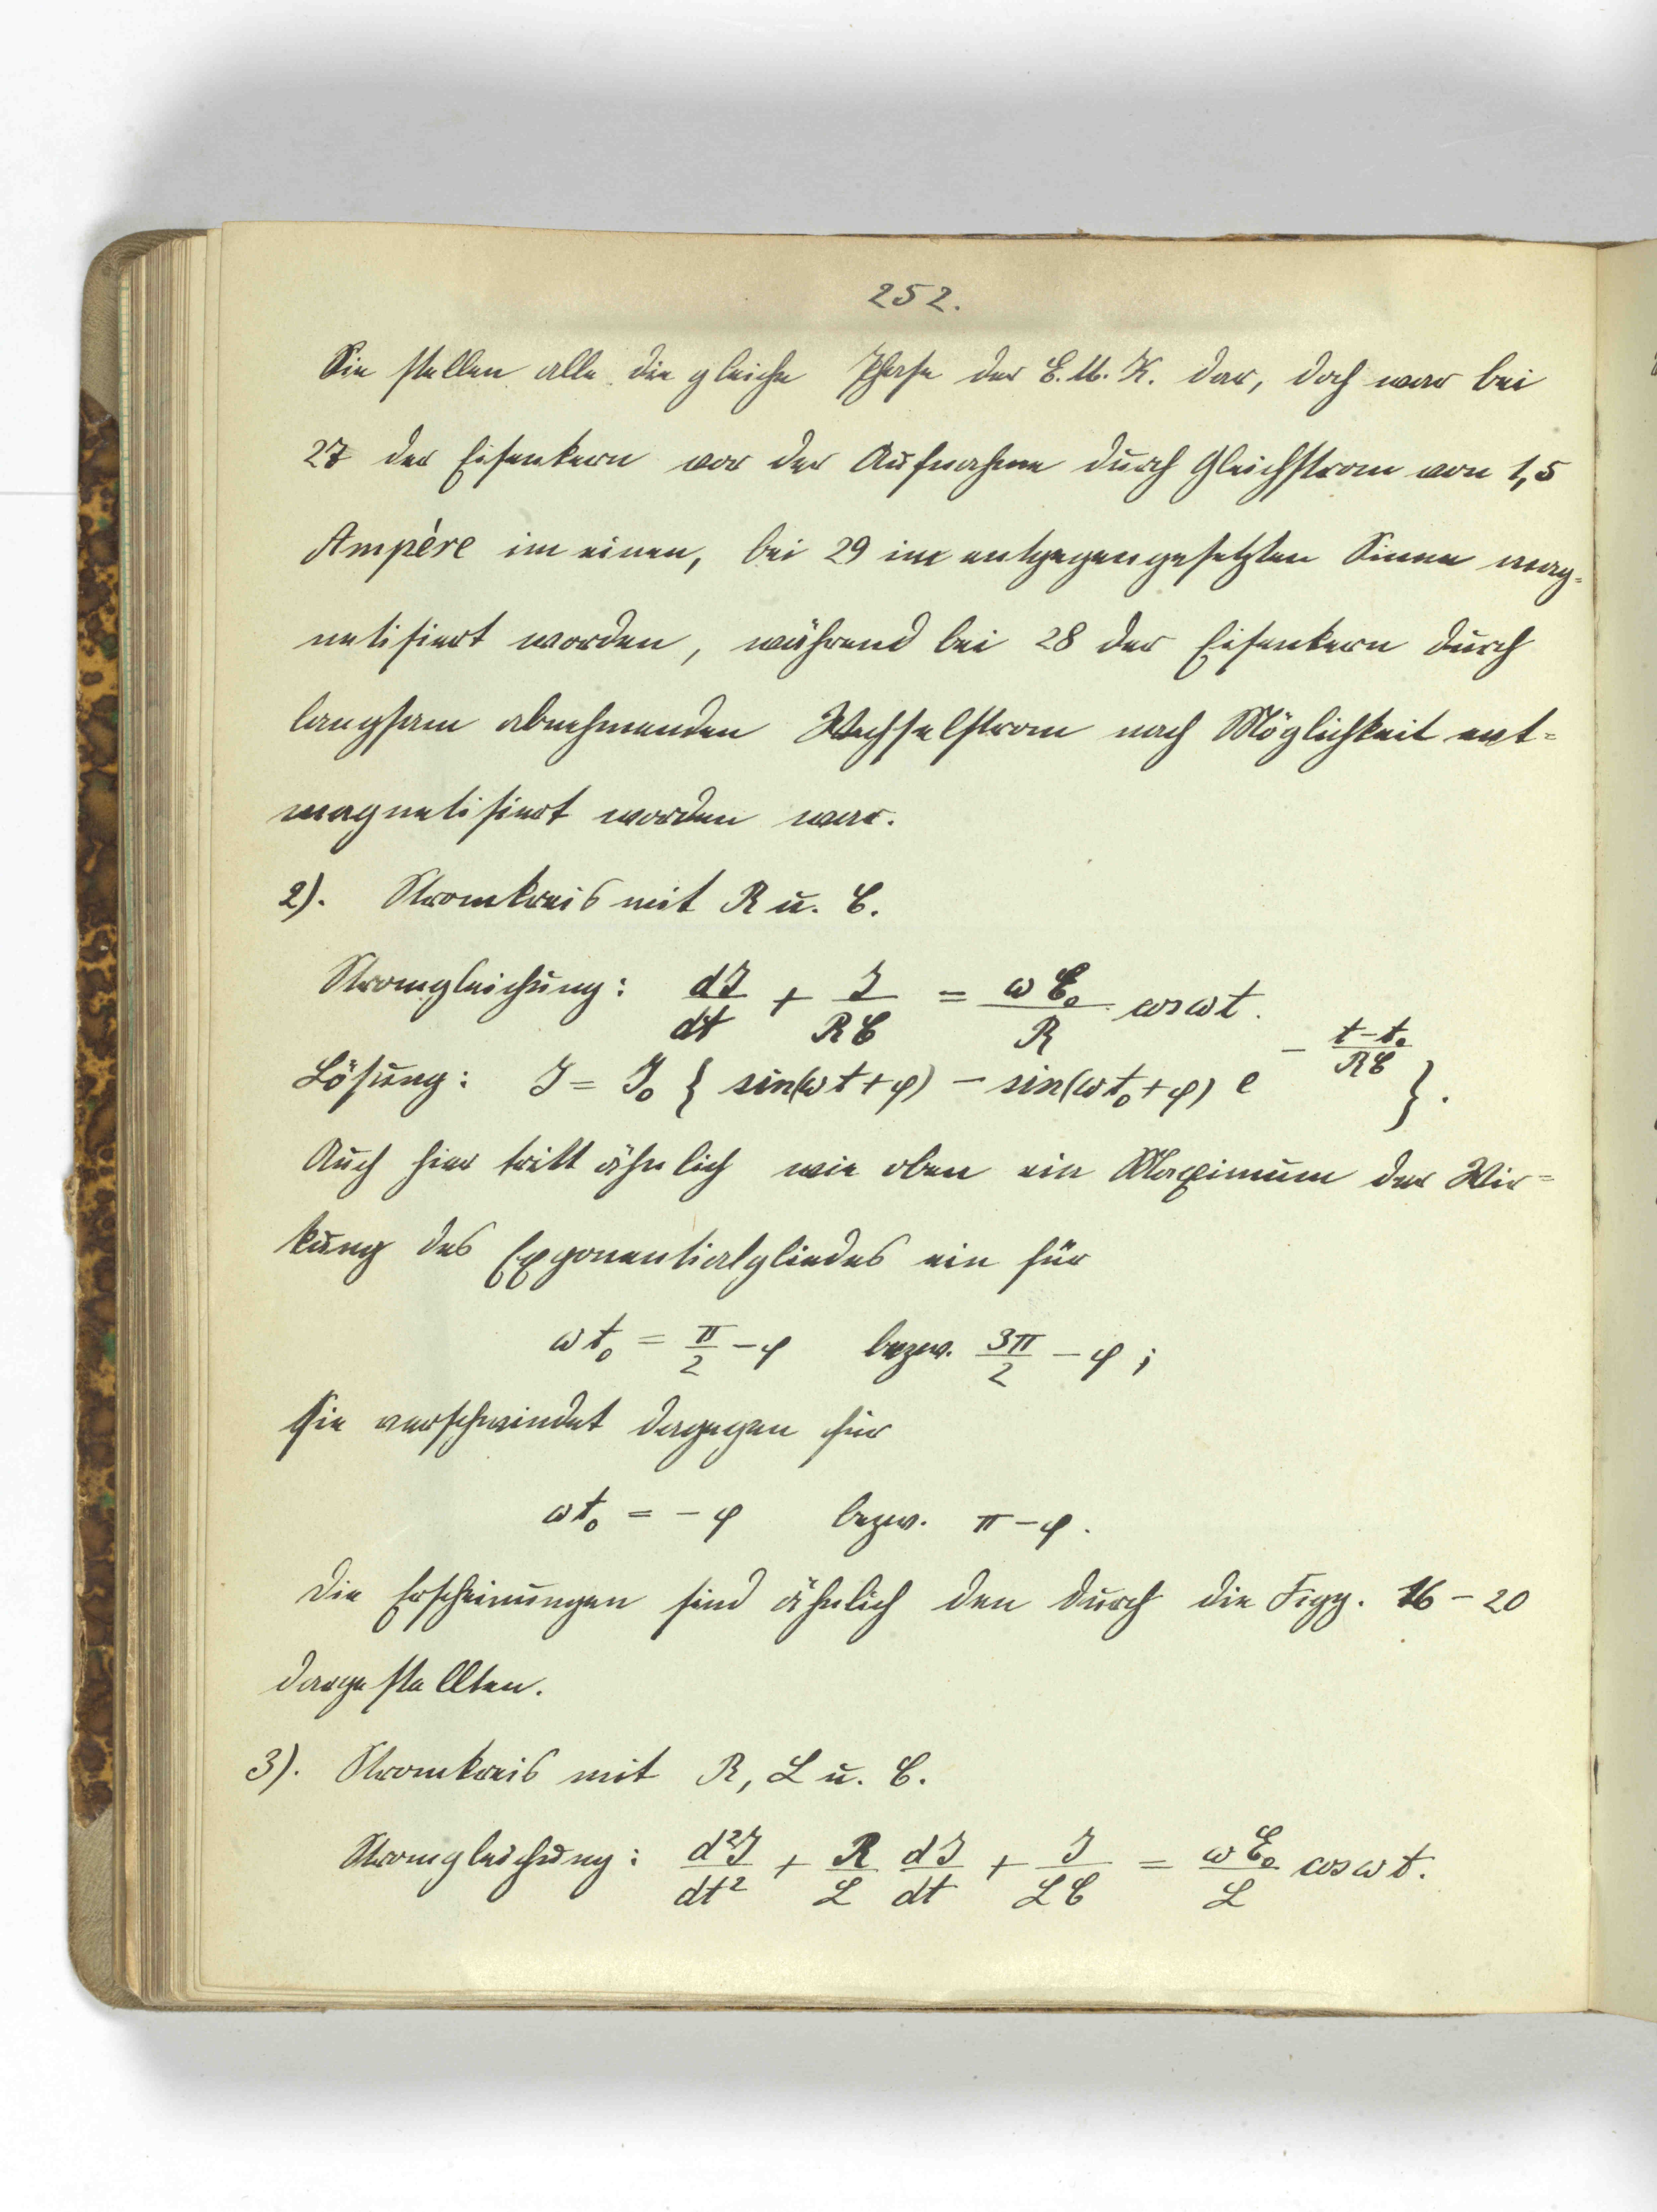 252.
Sie stellen alle die gleiche Phase der E.M.K. dar, doch war bei
27 der Eisenkern vor der Aufnahme durch Gleichstrom von 1,5
Ampère im einen, bei 29 im entgegengesetzten Sinne mag-
netisiert worden, während bei 28 der Eisenkern durch
langsam abnehmenden Wechselstrom nach Möglichkeit ent-
magnetisiert worden war.
2). Stromkreis mit R u. C.
Stromgleichung: dJ/dt + J/RC = ωE₀/R cos ωt.
Lösung: J = J₀ { sin(ωt + φ) − sin(ωt₀ + φ) e^(− (t−t₀)/RC) }.
Auch hier tritt ähnlich wie oben ein Maximum der Wir-
kung des Exponentialgliedes ein für
ωt₀ = π/2 − φ bezw. 3π/2 − φ ;
sie verschwindet dagegen für
ωt₀ = − φ bezw. π − φ.
Die Erscheinungen sind ähnlich den durch die Figg. 16 − 20
dargestellten.
3). Stromkreis mit R, L u. C.
Stromgleichung: d²J/dt² + R/L dJ/dt + J/LC = ωE₀/L cos ωt.